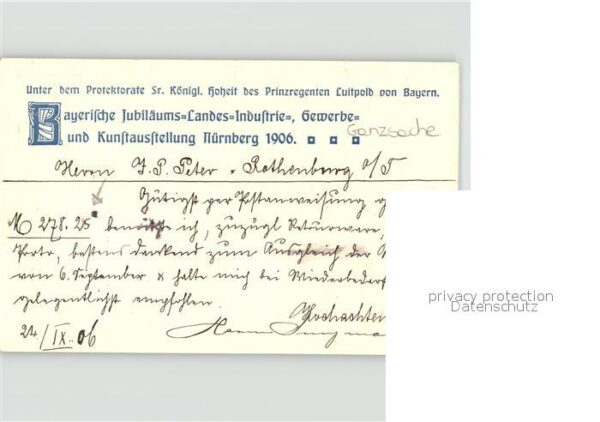 Unter dem Protektorate Sr. Königl. Hoheit des Prinzregenten Luitpold von Bayern.
Bayerische Jubiläums=Landes=Industrie=, Gewerbe=
und Kunstausstellung Nürnberg 1906.
Ganzsache
Herrn J. P. Peter - Rothenburg o/T
Gütigst per Postanweisung
M 278.25 ich, zuzügl Retourware,
Porto, bestens dankend zum Ausgleich der
von 6. September & halte mich bei Wiederbedarf
gelegentlichst empfohlen.
Hochachten
24/IX. 06
privacy protection
Datenschutz